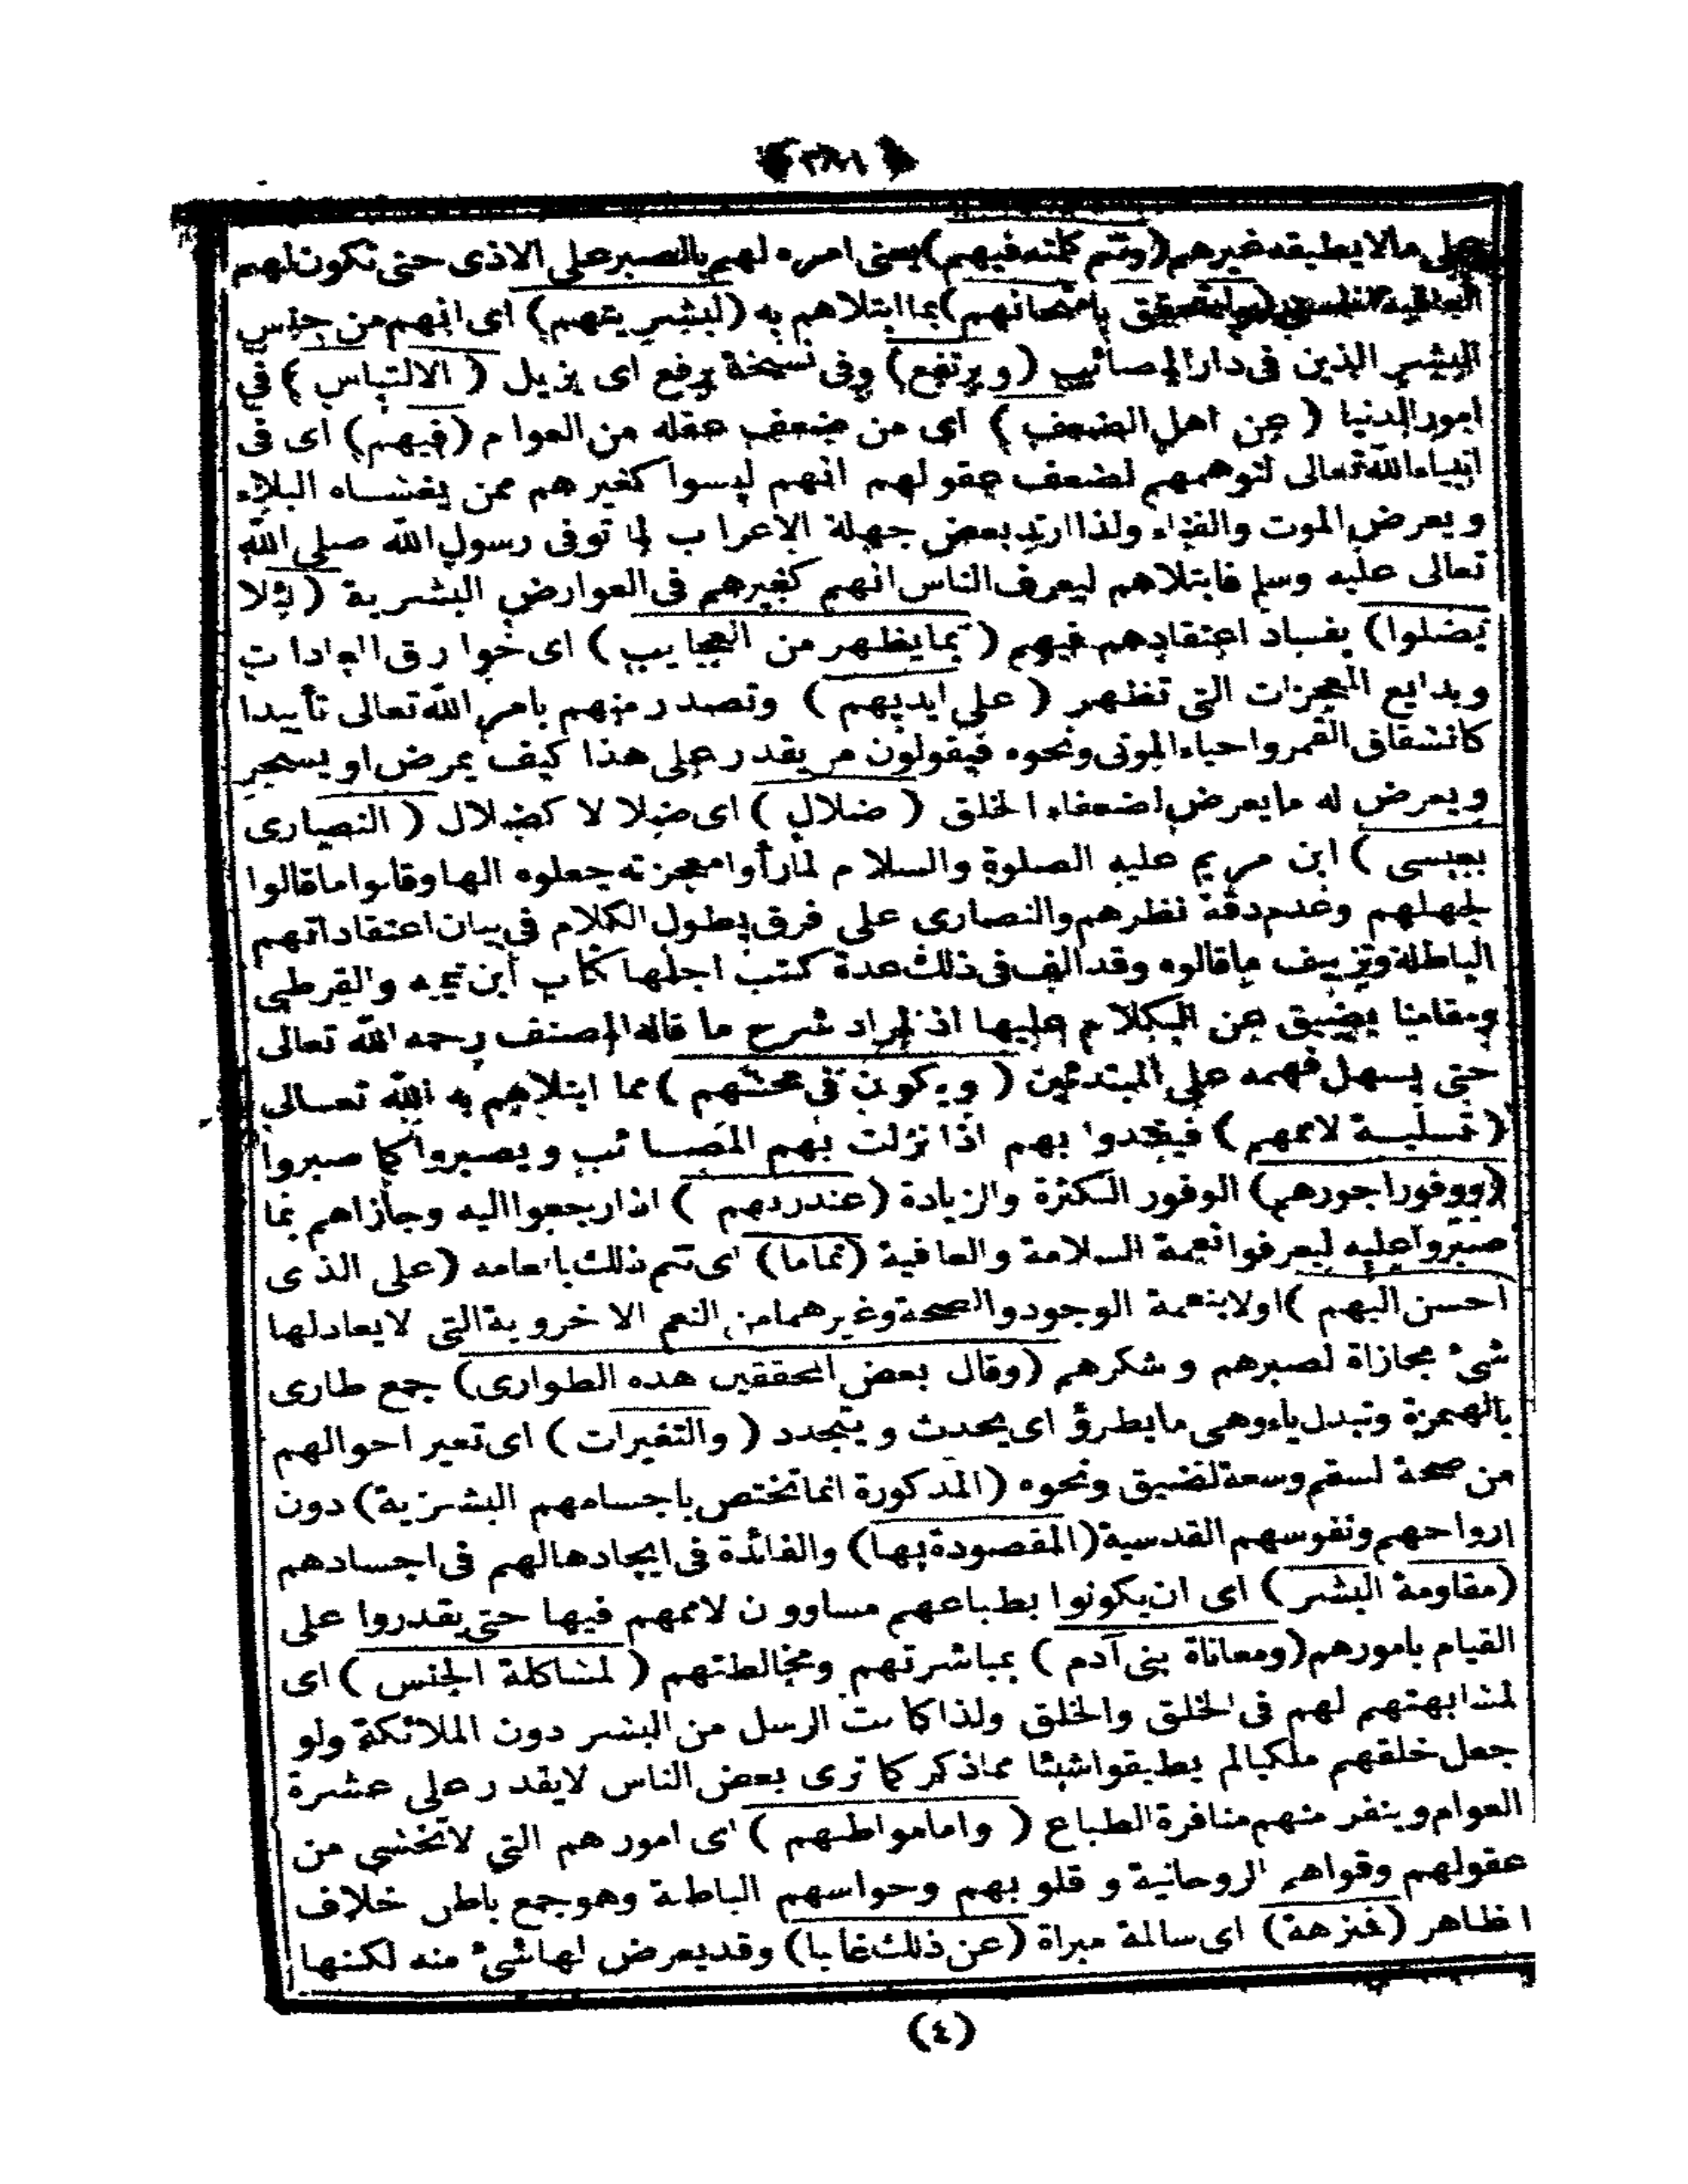 ﴿٣٨١﴾
على مالايطيقه غيرهم (وتتم كلته فيهم) يعنى امره لهم بالصبر على الاذى حتى تكون لهم
العاقبة بامتحانهم) بما ابتلاهم به (لبشريتهم) اى انهم من جنس
البشر الذين فى دار المصائب (ويرتفع) وفى نسخة يرفع اى يزيل (الالتباس) فى
امور الدنيا (عن اهل الضعف) اى من ضعف عقله من العوام (فيهم) اى فى
انبياء الله تعالى لتوهمهم لضعف عقولهم انهم ليسوا كغيرهم ممن يغشاه البلاء
ويعرض الموت والفناء ولذا ارتد بعض جهلة الاعراب لما توفى رسول الله صلى الله
تعالى عليه وسلم فابتلاهم ليعرف الناس انهم كغيرهم فى العوارض البشرية (لئلا
يضلوا) بفساد اعتقادهم فيهم (بما يظهر من العجايب) اى خوارق العادات
وبدايع المعجزات التى تظهر (على ايديهم) وتصدر منهم بامر الله تعالى تأييدا
كانشقاق القمر واحياء الموتى ونحوه فيقولون من يقدر على هذا كيف يمرض او يسحر
ويعرض له ما يعرض لضعفاء الخلق (ضلال) اى ضلالا كضلال (النصارى
بعيسى) ابن مريم عليه الصلوة والسلام لما رأوا معجزته جعلوه الها وقالوا ما قالوا
لجهلهم وعدم دقة نظرهم والنصارى على فرق يطول الكلام فى بيان اعتقاداتهم
الباطلة وتزييف ما قالوه وقد الف فى ذلك عدة كتب اجلها كتاب ابن تيميه والقرطبى
ومقامنا يضيق عن الكلام عليها اذ المراد شرح ما قاله المصنف رحمه الله تعالى
حتى يسهل فهمه على المبتدئين (ويكون فى محنهم) مما ابتلاهم به الله تعالى
(تسلية لاممهم) فيقتدوا بهم اذا نزلت بهم المصائب ويصبروا كما صبروا
(ووفور اجورهم) الوفور الكثرة والزيادة (عند ربهم) اذا رجعوا اليه وجازاهم بما
صبروا عليه ليعرفوا نعمة السلامة والعافية (تماما) اى تتم ذلك بانعامه (على الذى
احسن اليهم) اولا بنعمة الوجود والصحة وغيرهما من النعم الاخروية التى لا يعادلها
شئ مجازاة لصبرهم وشكرهم (وقال بعض المحققين هذه الطوارى) جمع طارى
بالهمزة وتبدل ياء وهى ما يطرؤ اى يحدث ويتجدد (والتغيرات) اى تغير احوالهم
من صحة لسقم وسعة لضيق ونحوه (المذكورة انما تختص باجسامهم البشرية) دون
ارواحهم ونفوسهم القدسية (المقصودة بها) والفائدة فى ايجادها لهم فى اجسادهم
(مقاومة البشر) اى ان يكونوا بطباعهم مساوون لاممهم فيها حتى يقدروا على
القيام بامورهم (ومعاناة بنى آدم) بمباشرتهم ومخالطتهم (لمشاكلة الجنس) اى
لمشابهتهم لهم فى الخلق والخلق ولذا كانت الرسل من البشر دون الملائكة ولو
جعل خلقهم ملكيا لم يطيقوا شيئا مما ذكر كما ترى بعض الناس لا يقدر على عشرة
العوام وينفر منهم منافرة الطباع (واما بواطنهم) اى امورهم التى لا تخشى من
عقولهم وقواهم الروحانية وقلوبهم وحواسهم الباطنة وهو جمع باطن خلاف
الظاهر (فمنزهة) اى سالمة مبراة (عن ذلك غالبا) وقد يعرض لها شئ منه لكنها
(٤)